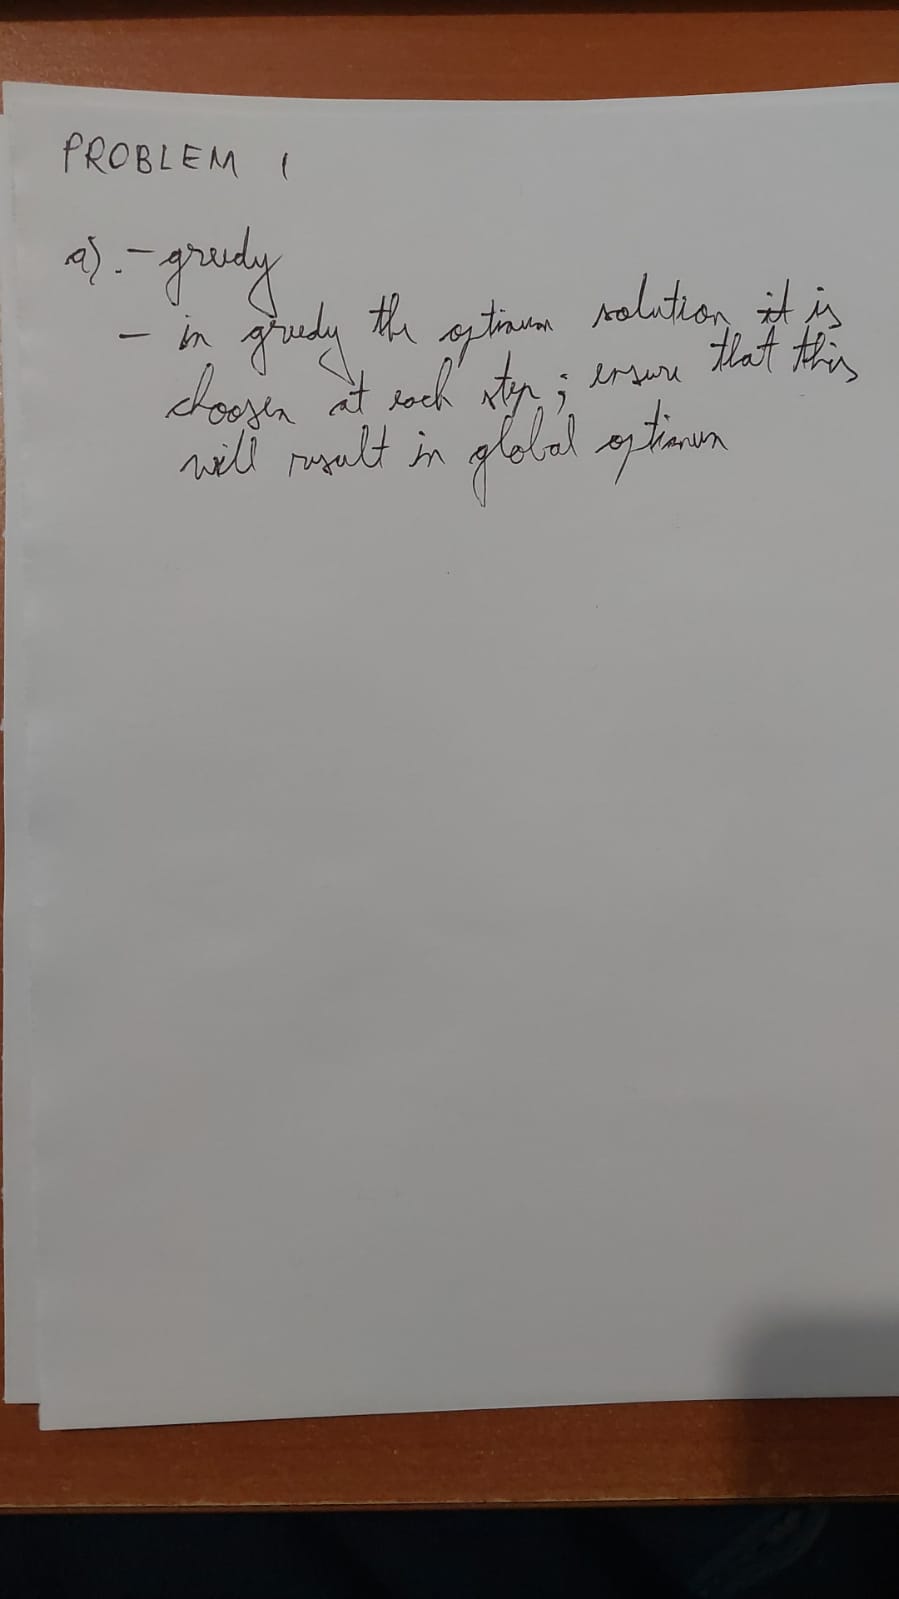 PROBLEM 1
a). - greedy
- in greedy the optimum solution it is
choosen at each step; ensure that this
will result in global optimum